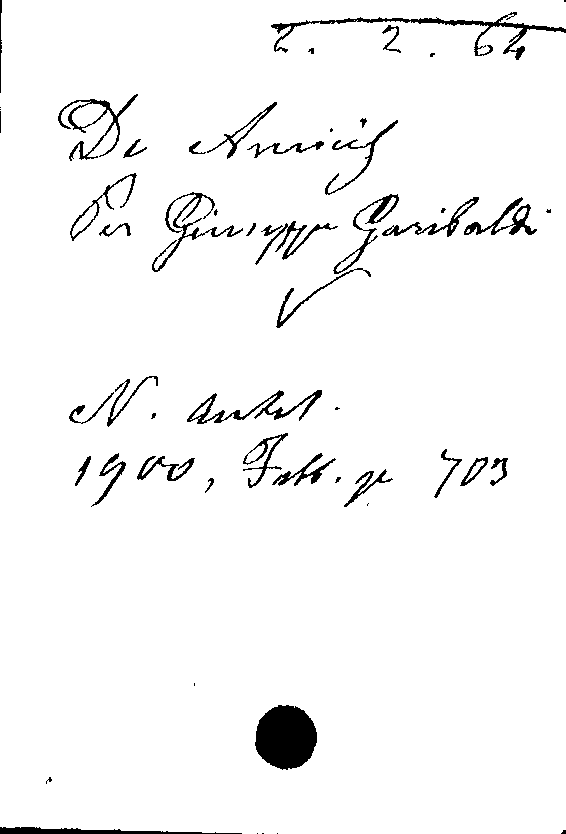 2. 2. 64
De Amicis
Per Giuseppe Garibaldi
N. Antol.
1900, Febb. p 703